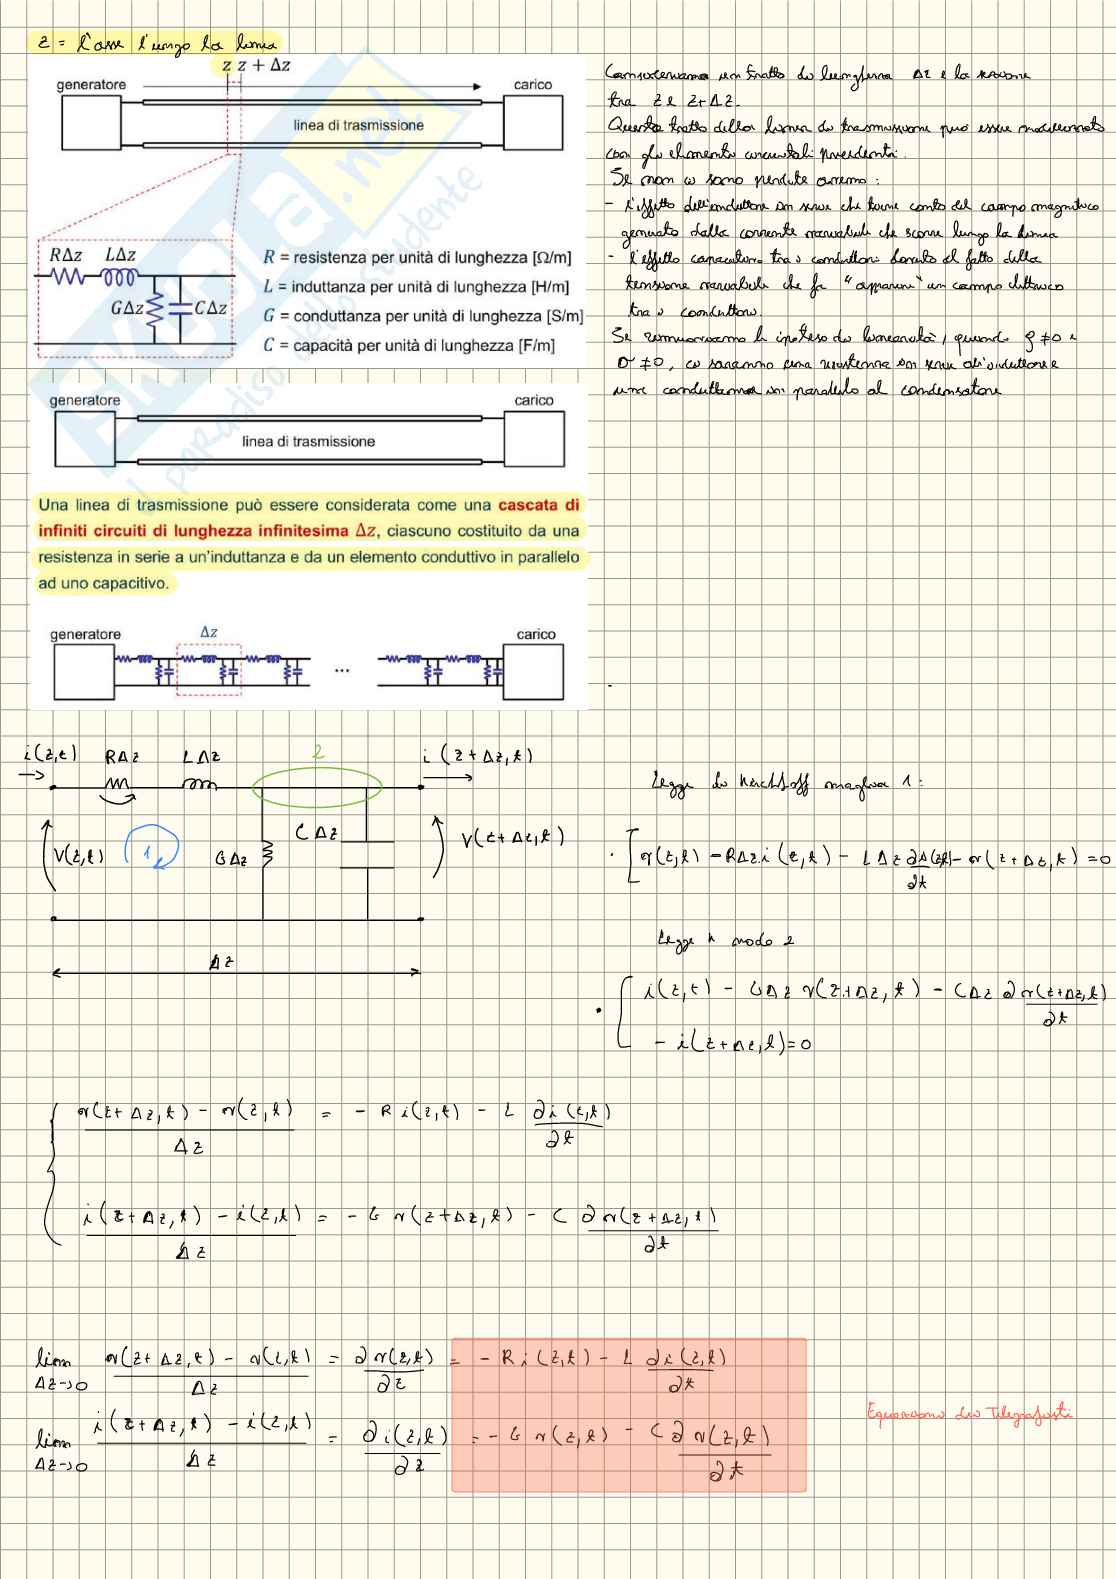 z = l'asse lungo la linea
z z + Δz
generatore
carico
linea di trasmissione
RΔz LΔz
GΔz CΔz
R = resistenza per unità di lunghezza [Ω/m]
L = induttanza per unità di lunghezza [H/m]
G = conduttanza per unità di lunghezza [S/m]
C = capacità per unità di lunghezza [F/m]
SKUOLA.net
il paradiso dello studente
generatore
carico
linea di trasmissione
Una linea di trasmissione può essere considerata come una cascata di
infiniti circuiti di lunghezza infinitesima Δz, ciascuno costituito da una
resistenza in serie a un'induttanza e da un elemento conduttivo in parallelo
ad uno capacitivo.
generatore
Δz
carico
...
Consideriamo un tratto di lunghezza Δz e la sezione
tra z e z+Δz.
Questo tratto della linea di trasmissione può essere
con gli elementi circuitali precedenti.
Se non ci sono perdite avremo:
- l'effetto dell'induttore in serie che tiene conto del campo magnetico
generato dalla corrente variabile che scorre lungo la linea
- l'effetto capacitivo tra i conduttori dovuto al fatto della
tensione variabile che fa "apparire" un campo elettrico
tra i conduttori.
Se rimuoviamo le ipotesi di linearità, quando ρ≠0 e
σ≠0, ci saranno una resistenza in serie all'induttore e
una conduttanza in parallelo al condensatore
i(z,t) RΔz LΔz 2 i(z+Δz,t)
V(z,t) 1 GΔz CΔz V(z+Δz,t)
Δz
Legge di Kirchhoff maglia 1:
v(z,t) - RΔz i(z,t) - LΔz ∂i(z,t)/∂t - v(z+Δz,t) = 0
Legge k nodo 2
i(z,t) - GΔz v(z+Δz,t) - CΔz ∂v(z+Δz,t)/∂t
- i(z+Δz,t) = 0
v(z+Δz,t) - v(z,t) / Δz = - R i(z,t) - L ∂i(z,t)/∂t
i(z+Δz,t) - i(z,t) / Δz = - G v(z+Δz,t) - C ∂v(z+Δz,t)/∂t
lim Δz→0 v(z+Δz,t) - v(z,t) / Δz = ∂v(z,t)/∂z = - R i(z,t) - L ∂i(z,t)/∂t
lim Δz→0 i(z+Δz,t) - i(z,t) / Δz = ∂i(z,t)/∂z = - G v(z,t) - C ∂v(z,t)/∂t
Equazioni dei Telegrafisti